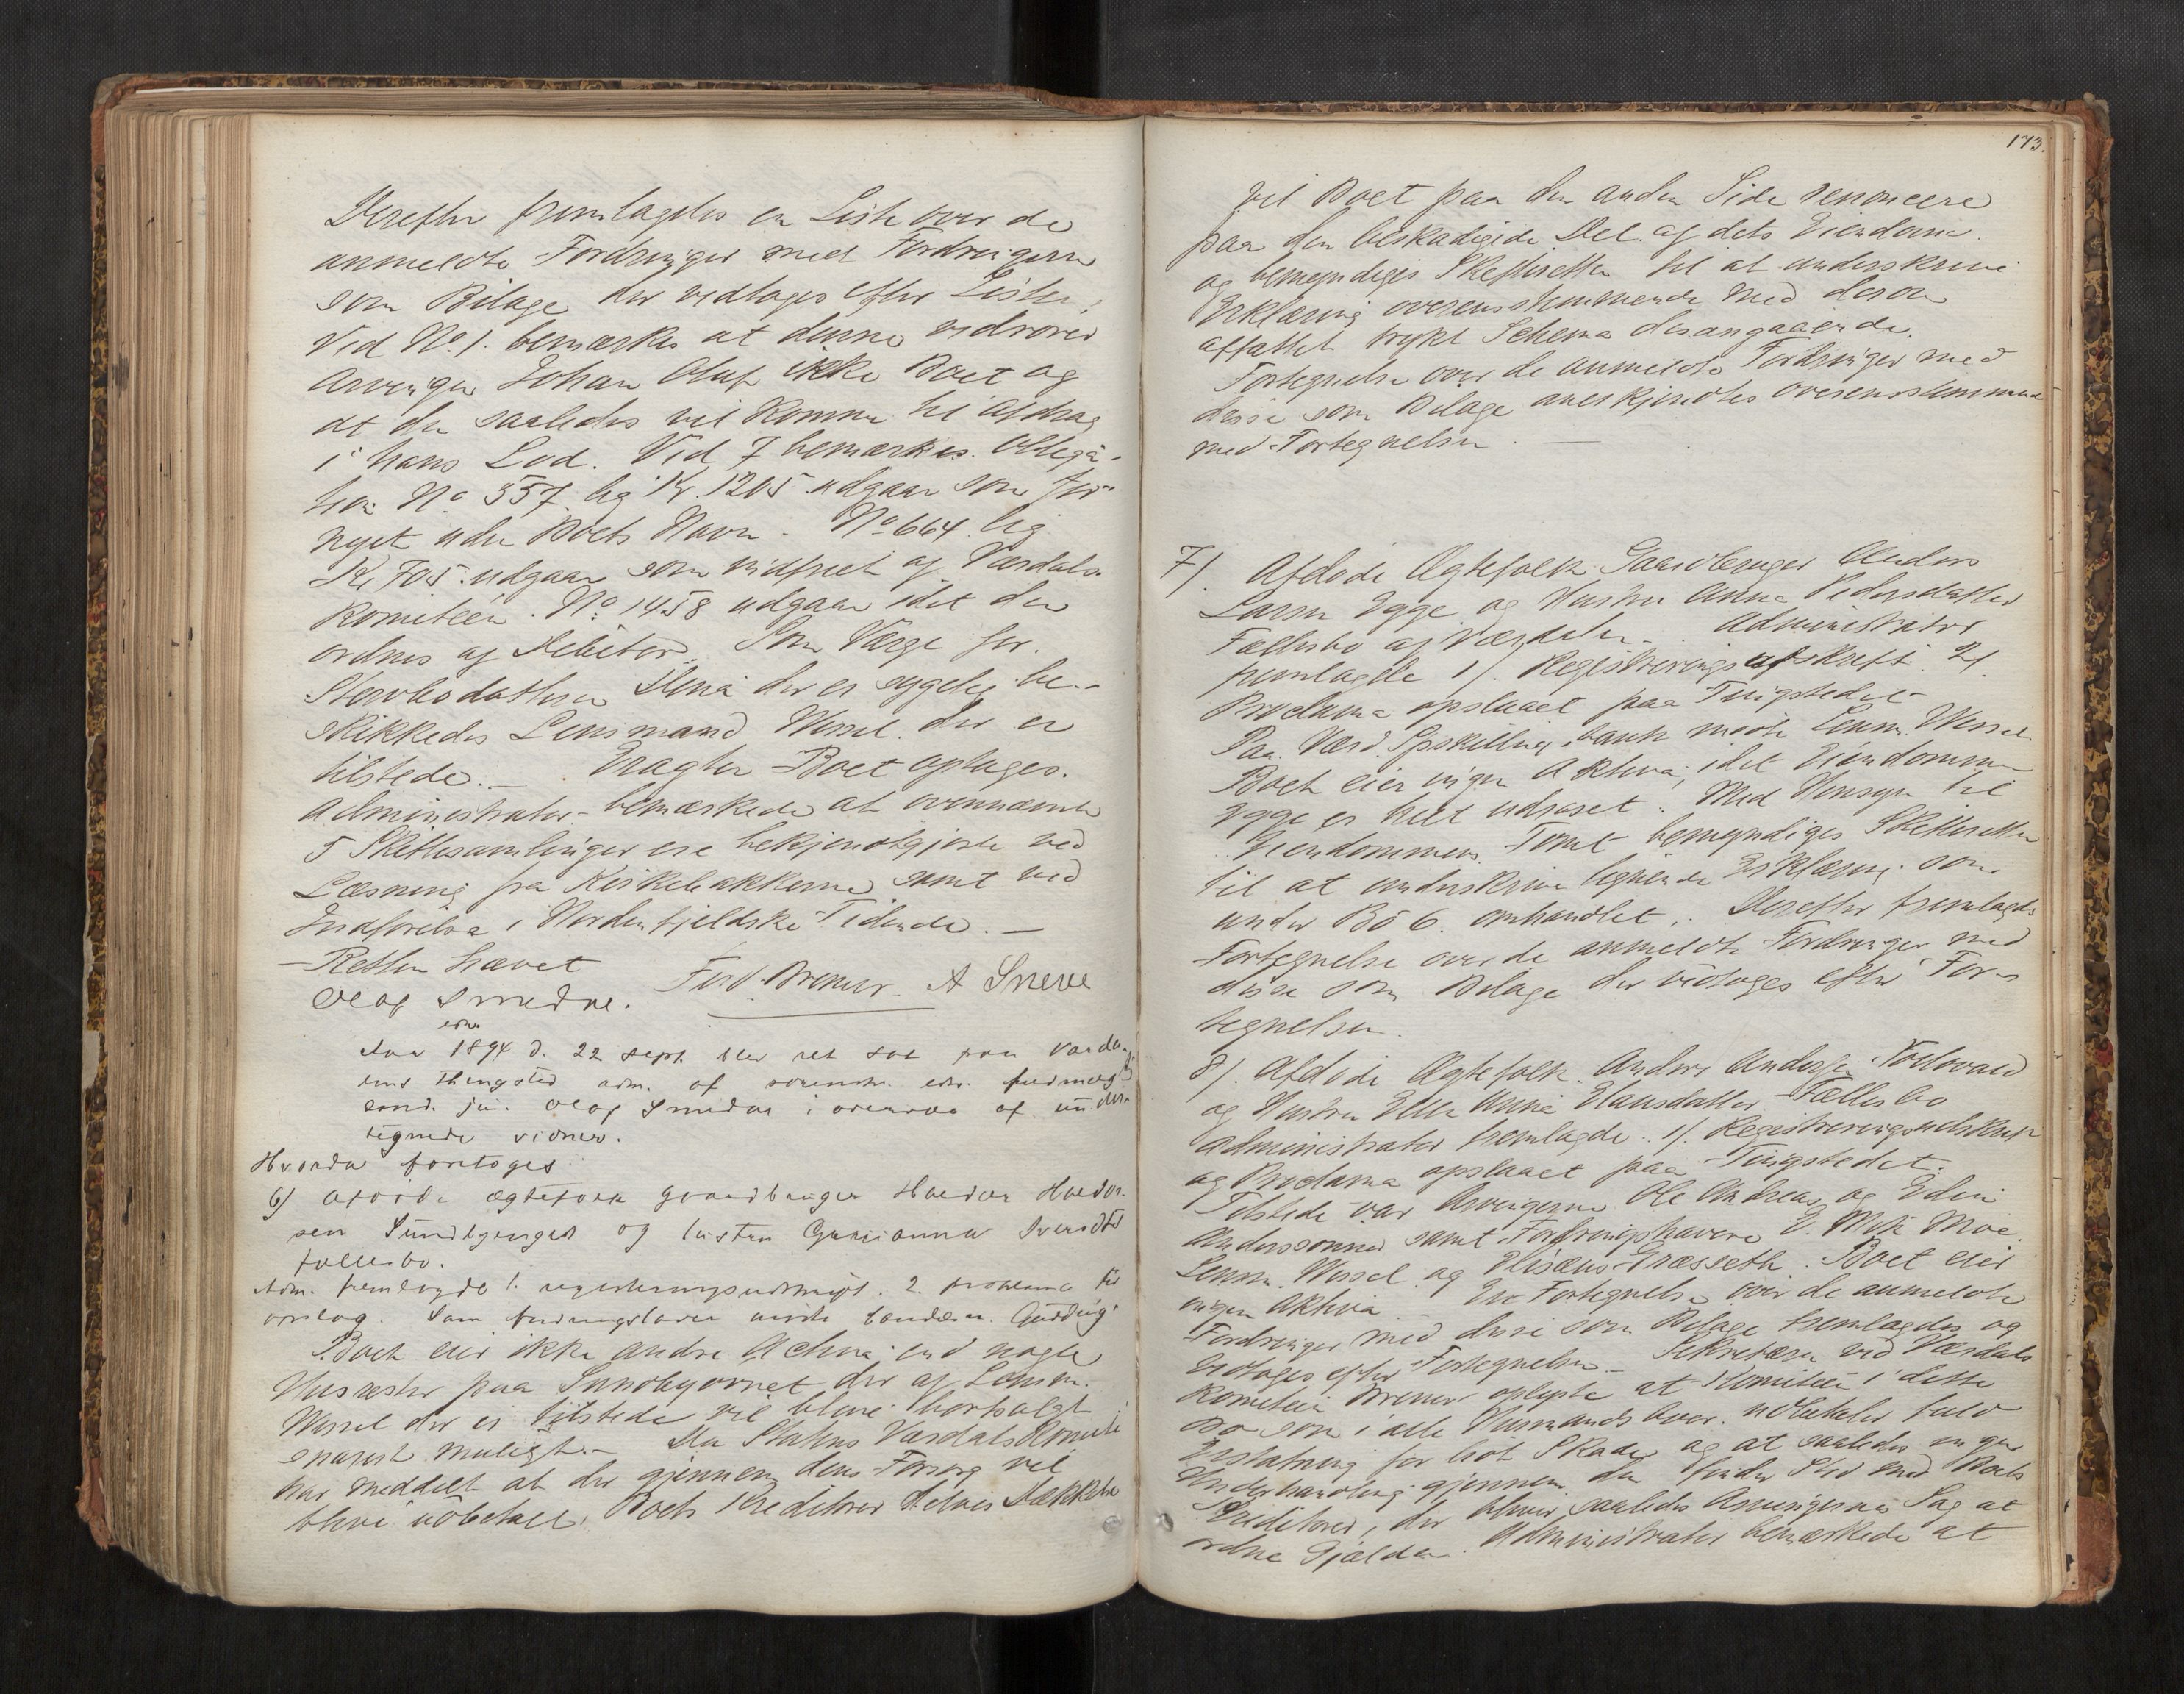 Derefter fremlagdes en Liste over de
anmeldte Fordringer med Fordringerne
som Bilage der vedtoges efter Listen,
Ved No. 1. bemærkes at denne vedrører
Arvingen Johan Oluf ikke Boet og
at den saaledes vil komme til Afdrag
i hans Lod. Ved 7 bemærkes. Obliga-
tion No 557 lig Kr. 1205 udgaar som for-
nyet uden Boets Navn. No 664 lig
Kr 705. udgaar som indfriet af Værdals
komiteen. No. 1458 udgaar idet den
ordnes af Debitor. Som Værge for
Stervbodatteren Elena der er sygelig be-
skikkedes Lensmand Wessel. der er
tilstede. – Eragter Boet optages.
Administrator bemærkede at ovennævnte
5 Skiftesamlinger ere bekjendtgjorte ved
Læsning fra Kirkebakkerne samt ved
Indførelse i Nordenfjeldske Tidende. –
– Retten hævet
Olaf Smedne. Ferd. Bremer. A Sneve
Aar 1894 d. 22 sept. blev ret sat paa Værda-
lens thingsted adm. af sorenskr. edv. fuldmægtig
cand. jur. Olaf Smedne i overvær af under-
tegnede vidner.
Hvorda foretoges
6) Afdøde ægtefolk gaardbruger Haldor Haldor-
sen Sundbyenget og hustru Gurianna Iversdtr
fællesbo.
Adm. fremlagde 1. registreringsudskrift. 2. proklama til
opslag. Som fordringshaver mødte Gudding.
Boet eier ikke andre Activa end nogle
Husrester paa Sundbyovnet der af Lensm.
Wessel der er tilstede vil blive bortsolgt
snarest muligt. – Da Statens Værdalskomite
har meddelt at der gjennem dens Forsorg vil
blive udbetalt Boets Kreditorer delvis Dækkelse
173.
vil Boet paa den anden Side renoncere
paa den beskadigede Del af dets Eiendom
og bemyndiges Skifteretten til at underskrive
Erklæring overensstemmende med derom
affattet trykt Schema desangaaende.
Fortegnelse over de anmeldte Fordringer med
disse som Bilage anerkjendtes overensstemmende
med Fortegnelsen. –
7/. Afdøde Ægtefolk Gaardbruger Anders
Larsen Egge og Hustru Anna Pedersdatter
Fællesbo af Værdalen. Administrator
fremlagde 1/. Registreringsafskrift 2/.
Proclama opslaaet paa Tingstedet
Paa Værd. Spskillingsbank mødte Lensm. Wessel.
Boet eier ingen Aktiva, idet Eiendommen
Egge er helt udraset. Med Hensyn til
Eiendommens Tomt bemyndiges Skifteretten
til at underskrive lignende Erklæring som
under Bo 6. omhandlet. Derefter fremlagdes
Fortegnelse over de anmeldte Fordringer med
disse som Bilage der vedtoges efter For-
tegnelsen.
8/. Afdøde Ægtefolk Anders Andersen
og Hustru Ellen Anna Elausdatter Fællesbo
Administrator fremlagde 1/. Registreringsudskrift
og Proclama opslaaet paa Tingstedet.
Tilstede var Arvingerne Ole Andreas og Edin
Anderssønner samt Fordringshavere E. Moe.
Lensm. Wessel og Elisæus Græsseth. Boet eier
ingen Aktiva En Fortegnelse over de anmeldte
Fordringer med disse som Bilage fremlagdes og
vedtoges efter Fortegnelsen. – Sekretæren ved Værdals
komiteen Bremer oplyste at Komiteen i dette
Bo som i alle Husmandsboer. udbetaler fuld
Erstatning for lidt Skade og at saaledes ingen
Underhandling gjennem den finder Sted med Boets
Kreditorer, der bliver saaledes Arvingernes Sag at
ordne Gjælden. Administrator bemærkede at